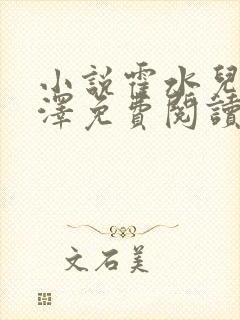 小說霍水兒
澤免費閱讀
文石美